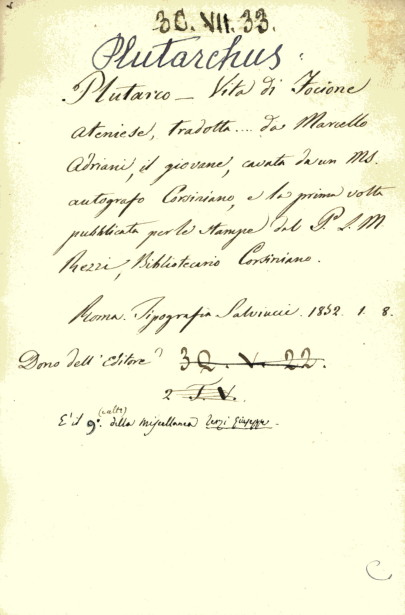 3C. VII. 33.
Plutarchus
Plutarco — Vita di Focione
Ateniese, tradotta .... da Marcello
Adriani, il giovane, cavata da un MS.
autografo Corsiniano, e la prima volta
pubblicata per le stampe dal P. L. M.
Rezzi, Bibliotecario Corsiniano.
Roma. Tipografia Salviucci. 1832. 1. 8.
Dono dell'Editore 3Q. V. 22.
2 T. V.
(volto)
E' il 9°. della Miscellanea Giuseppe.